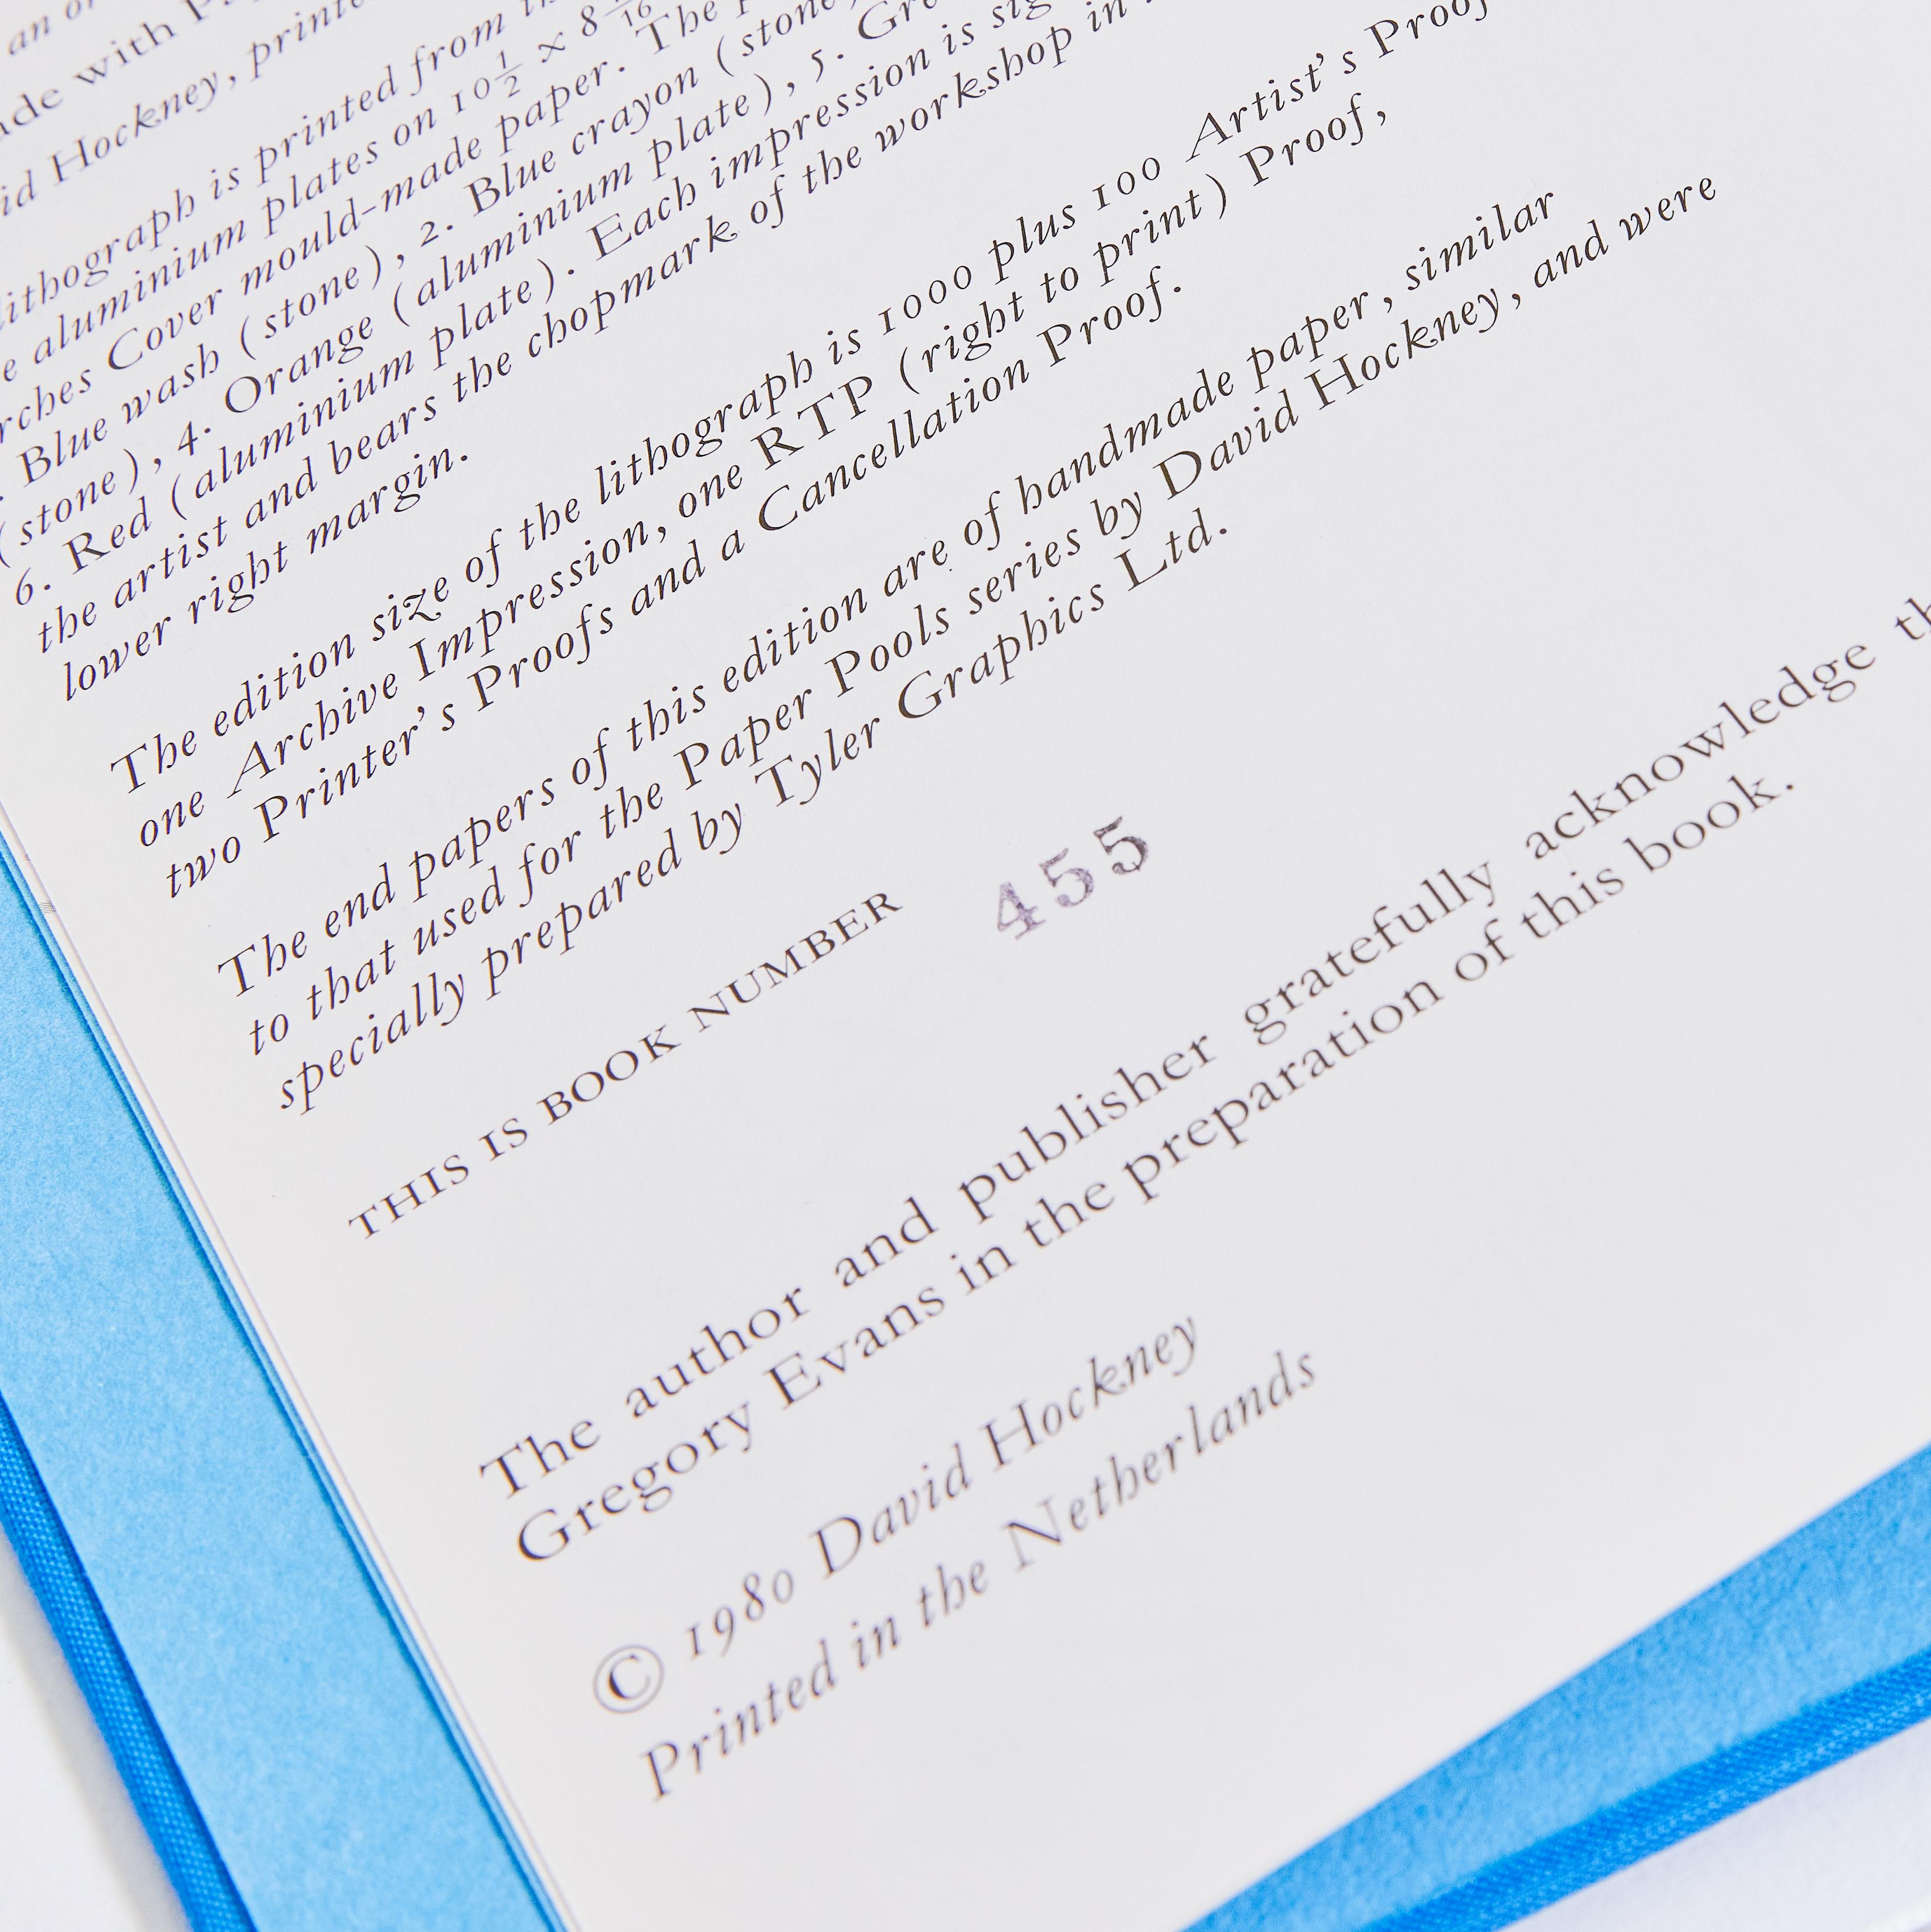 an or
made with Pa
id Hockney, printe
lithograph is printed from th
e aluminium plates on 10 1/2 × 8
rches Cover mould-made paper. The
Blue wash (stone), 2. Blue crayon (stone
(stone), 4. Orange (aluminium plate), 5. Gre
6. Red (aluminium plate). Each impression is sig
the artist and bears the chopmark of the workshop in
lower right margin.
The edition size of the lithograph is 1000 plus 100 Artist's Proof
one Archive Impression, one RTP (right to print) Proof,
two Printer's Proofs and a Cancellation Proof.
The end papers of this edition are of handmade paper, similar
to that used for the Paper Pools series by David Hockney, and were
specially prepared by Tyler Graphics Ltd.
THIS IS BOOK NUMBER 455
The author and publisher gratefully acknowledge th
Gregory Evans in the preparation of this book.
© 1980 David Hockney
Printed in the Netherlands